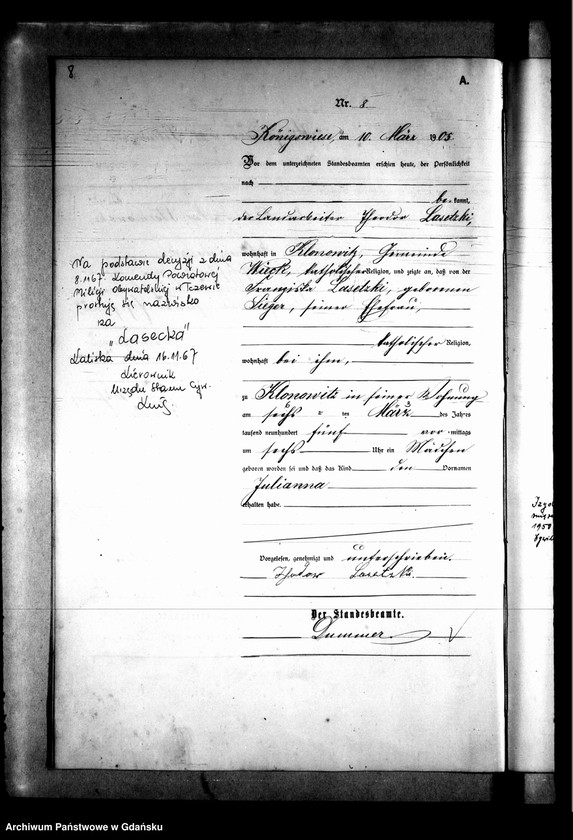 8
A.
Nr. 8
Königswiese, am 10. März 1905
Vor dem unterzeichneten Standesbeamten erschien heute, der Persönlichkeit
nach
be kannt,
der Landarbeiter Theodor Lasetzki,
wohnhaft in Klonowitz, Gemeinde
Wieck, katholischer Religion, und zeigte an, daß von der
Franziska Lasetzki, geborenen
Sieger, seiner Ehefrau,
katholischer Religion,
wohnhaft bei ihm,
zu Klonowitz in seiner Wohnung
am sechs ten März des Jahres
tausend neunhundert fünf vor mittags
um sechs Uhr ein Mädchen
geboren worden sei und daß das Kind den Vornamen
Julianna
erhalten habe.
Vorgelesen, genehmigt und unterschrieben.
Lasetzki
Der Standesbeamte.
Dummer
Na podstawie decyzji z dnia
8.11.67. Komendy Powiatowej
Milicji Obywatelskiej w Tczewie
prostuję się nazwisko
na
"Lasecka"
Kaliska dnia 16.11.67
Kierownik
Urzędu Stanu Cyw.
1950
Archiwum Państwowe w Gdańsku